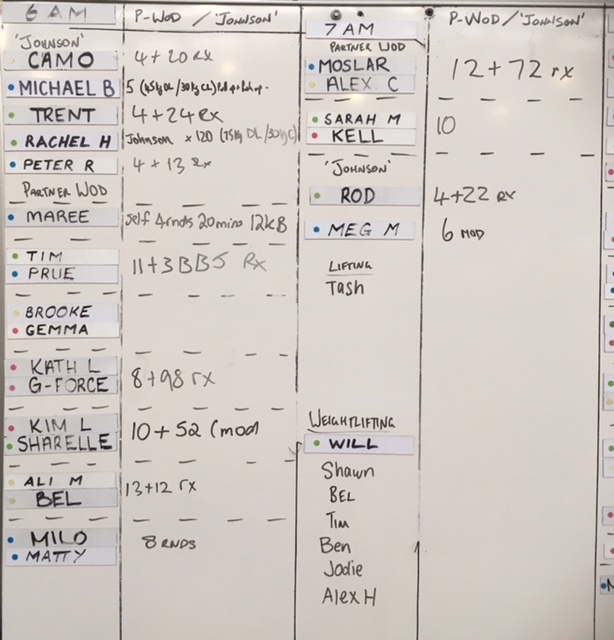 6 AM
P-WOD / 'JOHNSON'
'JOHNSON'
CAMO
4 + 20 RX
MICHAEL B
5 (45kg DL/30kg CL)
TRENT
4 + 24 RX
RACHEL H
Johnson x 120 (75kg DL/30kg C)
PETER R
4 + 13 Rx
PARTNER WOD
MAREE
self 4rnds 20mins 12KB
TIM
PRUE
11+3 BBJ RX
BROOKE
GEMMA
KATH L
G-FORCE
8+98 rx
KIM L
SHARELLE
10 + 52 (mod
ALI M
BEL
13+12 rx
MILO
MATTY
8 RNDS
7 AM
P-WOD / 'JOHNSON'
PARTNER WOD
MOSLAR
ALEX C
12 + 72 rx
SARAH M
KELL
10
'JOHNSON'
ROD
4+22 RX
MEG M
6 MOD
LIFTING
TASH
WEIGHTLIFTING
WILL
Shawn
BEL
TIM
Ben
Jodie
Alex H